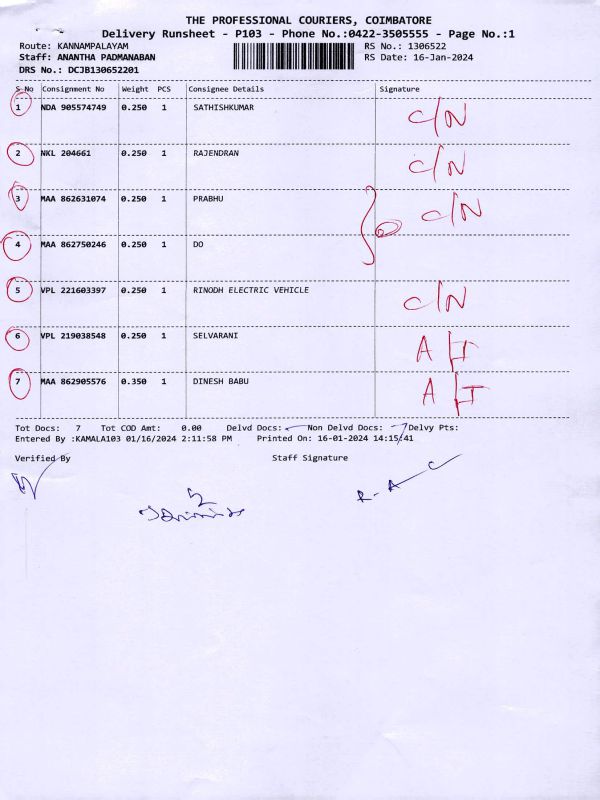 THE PROFESSIONAL COURIERS, COIMBATORE
Delivery Runsheet - P103 - Phone No.:0422-3505555 - Page No.:1
Route: KANNAMPALAYAM RS No.: 1306522
Staff: ANANTHA PADMANABAN RS Date: 16-Jan-2024
DRS No.: DCJB130652201
S No Consignment No Weight PCS Consignee Details Signature
1 NDA 905574749 0.250 1 SATHISHKUMAR C/N
2 NKL 204661 0.250 1 RAJENDRAN C/N
3 MAA 862631074 0.250 1 PRABHU C/N
4 MAA 862750246 0.250 1 DO
5 VPL 221603397 0.250 1 RINODH ELECTRIC VEHICLE C/N
6 VPL 219038548 0.250 1 SELVARANI A/I
7 MAA 862905576 0.350 1 DINESH BABU A/I
Tot Docs: 7 Tot COD Amt: 0.00 Delvd Docs: Non Delvd Docs: 7 Delvy Pts:
Entered By :KAMALA103 01/16/2024 2:11:58 PM Printed On: 16-01-2024 14:15:41
Verified By Staff Signature